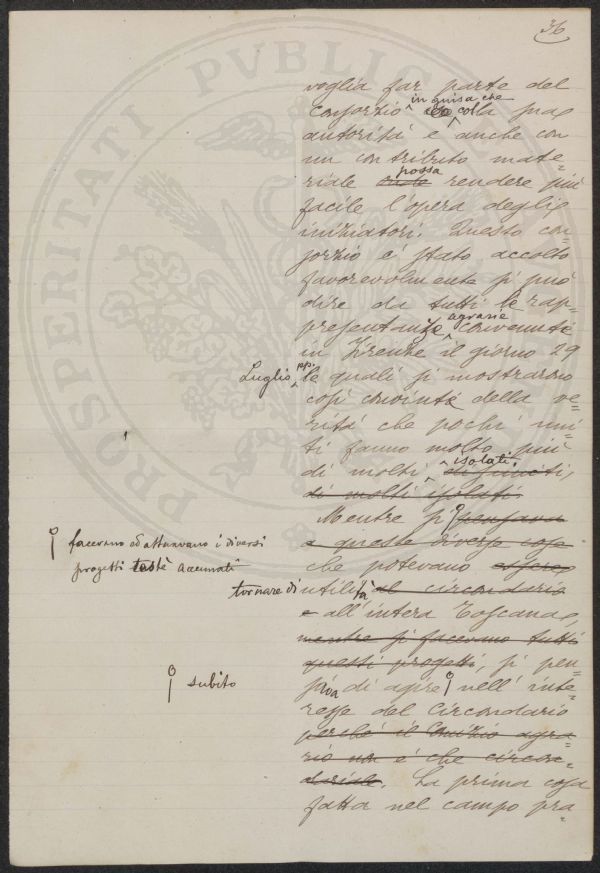 36
PROSPERITATI PVBLIC
voglia far parte del
Consorzio in guisa che colla sua
autorità e anche con
un contributo mate=
riale onde possa rendere più
facile l'opera degli
iniziatori. Questo con=
sorzio è stato accolto
favorevolmente si può
dire da tutti le rap=
presentanze agrarie convenute
in Firenze il giorno 29
Luglio pp. le quali si mostrarono
così convinte della ve=
rità che pochi uni=
ti fanno molto più
di molti isolati. disuniti,
di molti isolati.
Mentre si pensava
a queste diverse cose
facevano ed attuavano i diversi
progetti testè accennati
che potevano essere
tornare di utilità al circondario
e all'intera Toscana,
mentre si facevano tutti
questi progetti, si pen=
sava di agire nell'inte=
subito
resse del Circondario
perché il Comizio agra=
rio non è che circon=
dariale. La prima cosa
fatta nel campo pra=